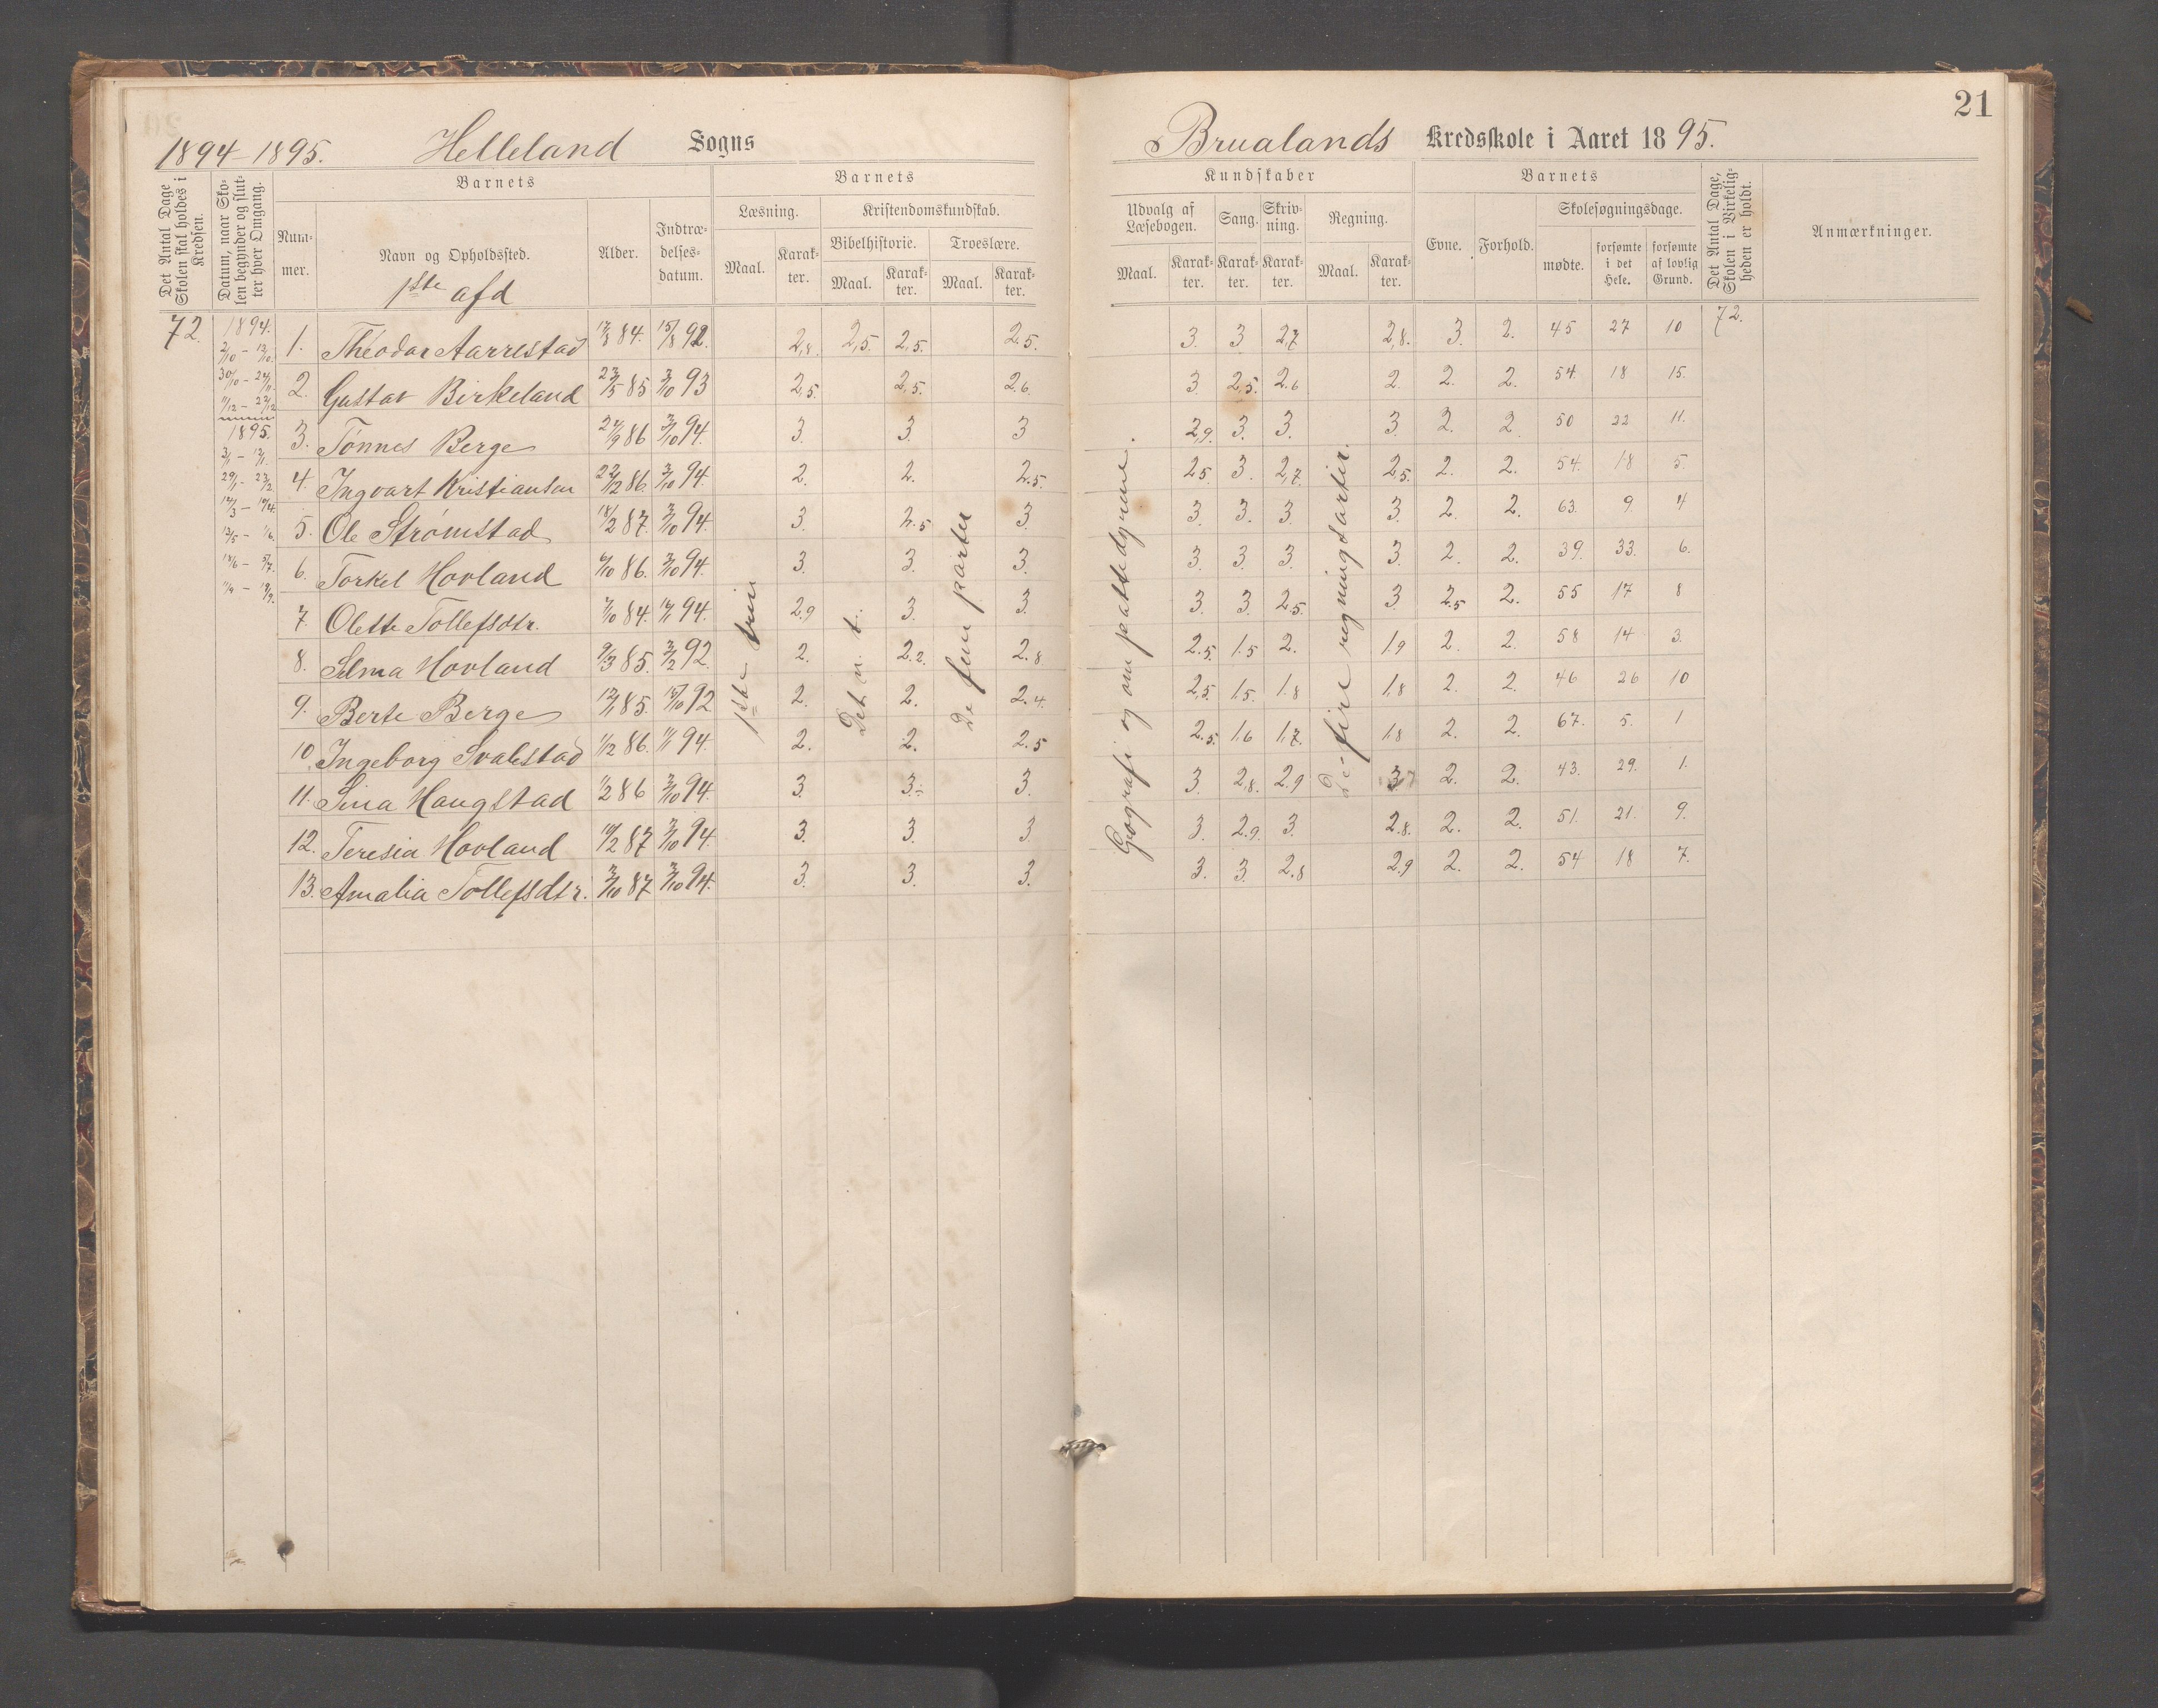 21
1894-1895. Helleland Sogns Brualands Kredsskole i Aaret 1895.
Det Antal Dage Skolen skal holdes i Kredsen.
Datum, naar Skolen begynder og slutter hver Omgang.
Barnets
Nummer.
Navn og Opholdssted.
1ste afd
Alder.
Indtrædelsesdatum.
Barnets
Læsning.
Maal.
Karakter.
Kristendomskundskab.
Bibelhistorie.
Maal.
Karakter.
Troeslære.
Maal.
Karakter.
Kundskaber
Udvalg af Læsebogen.
Maal.
Karakter.
Sang.
Karakter.
Skrivning.
Karakter.
Regning.
Maal.
Karakter.
Barnets
Evne.
Forhold.
Skolesøgningsdage.
mødte.
forsømte i det Hele.
forsømte af lovlig Grund.
Det Antal Dage, Skolen i Virkeligheden er holdt.
Anmærkninger.
72. 1894.
1895.
1. Theodor Aarrestad 84. 15/8 92. 2,8. 2,5. 2,5. 2.5. 3. 3 2,7 2,8. 3. 2. 45 27 10 72.
2. Gustav Birkeland 23/5 85 3/10 93 2,5. 2,5. 2.6. 3 2,5. 2.6 2. 2. 2. 54. 18 15.
3. Tønnes Berge 86 3/10 94. 3. 3. 3 2,9. 3. 3. 3. 2. 2 50 22 11.
4. Ingvart Kristiansen 22/12 86. 3/10 94. 2. 2. 2.5. 2.5 3. 2,7. 2,5. 2. 2. 54. 18 5.
5. Ole Strømstad 18/2 87. 3/10 94. 3. 2.5 3. 3. 3. 3. 3. 2. 2. 63. 9. 4
6. Torkel Hovland 86. 3/10 94. 3. 3. 3. 3. 3. 3. 3. 2. 2. 39. 33. 6.
7. Olette Tollefsdtr. 84. 94. 2.9 3. 3. 3. 3. 2.5. 3 2.5 2. 55 17 8
8. Selma Hovland 9/3 85. 3/2 92. 2. 2.2. 2.8 2.5. 1.5 2. 1.9 2. 2. 58 14 3.
9. Berte Berge 85. 15/10 92 2. 2. 2.4. 2,5. 1,5. 1.8 1,8 2. 2. 46 26 10
10. Ingeborg Svalestad 1/12 86. 94. 2. 2. 2.5 2.5. 1.6 1,7. 1,8 2. 2. 67. 5. 1
11. Sina Haugstad 86 3/10 94. 3. 3. 3. 3. 2,8. 2.9 3 2. 2. 43. 29. 1.
12. Teresia Hovland 87 3/10 94. 3. 3. 3. 3. 2.9. 3. 2.8. 2. 2. 51. 21. 9.
13. Amalia Tollefsdtr. 87 3/10 94. 3. 3. 3. 3. 3. 2.8 2.9 2. 2. 54 18 7.
1ste trin
Det n. t.
De fem parter
Geografi og om pattedyrene.
De fire regningsarter.